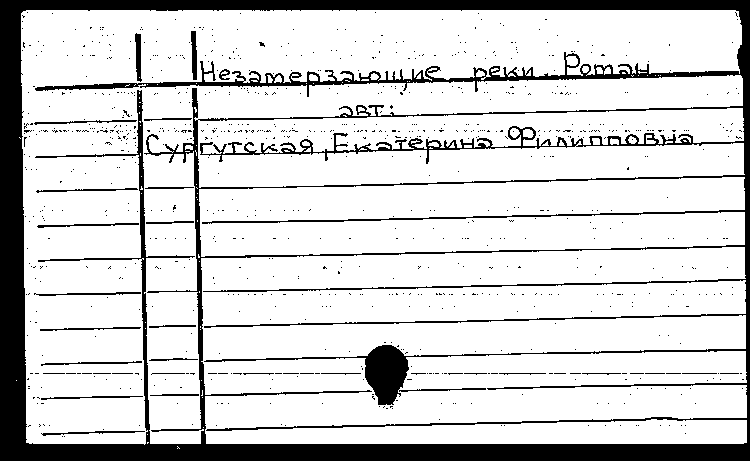 Незатерзающие реки. Ротан
авт:
Сургутская, Екатерина Филипповна.